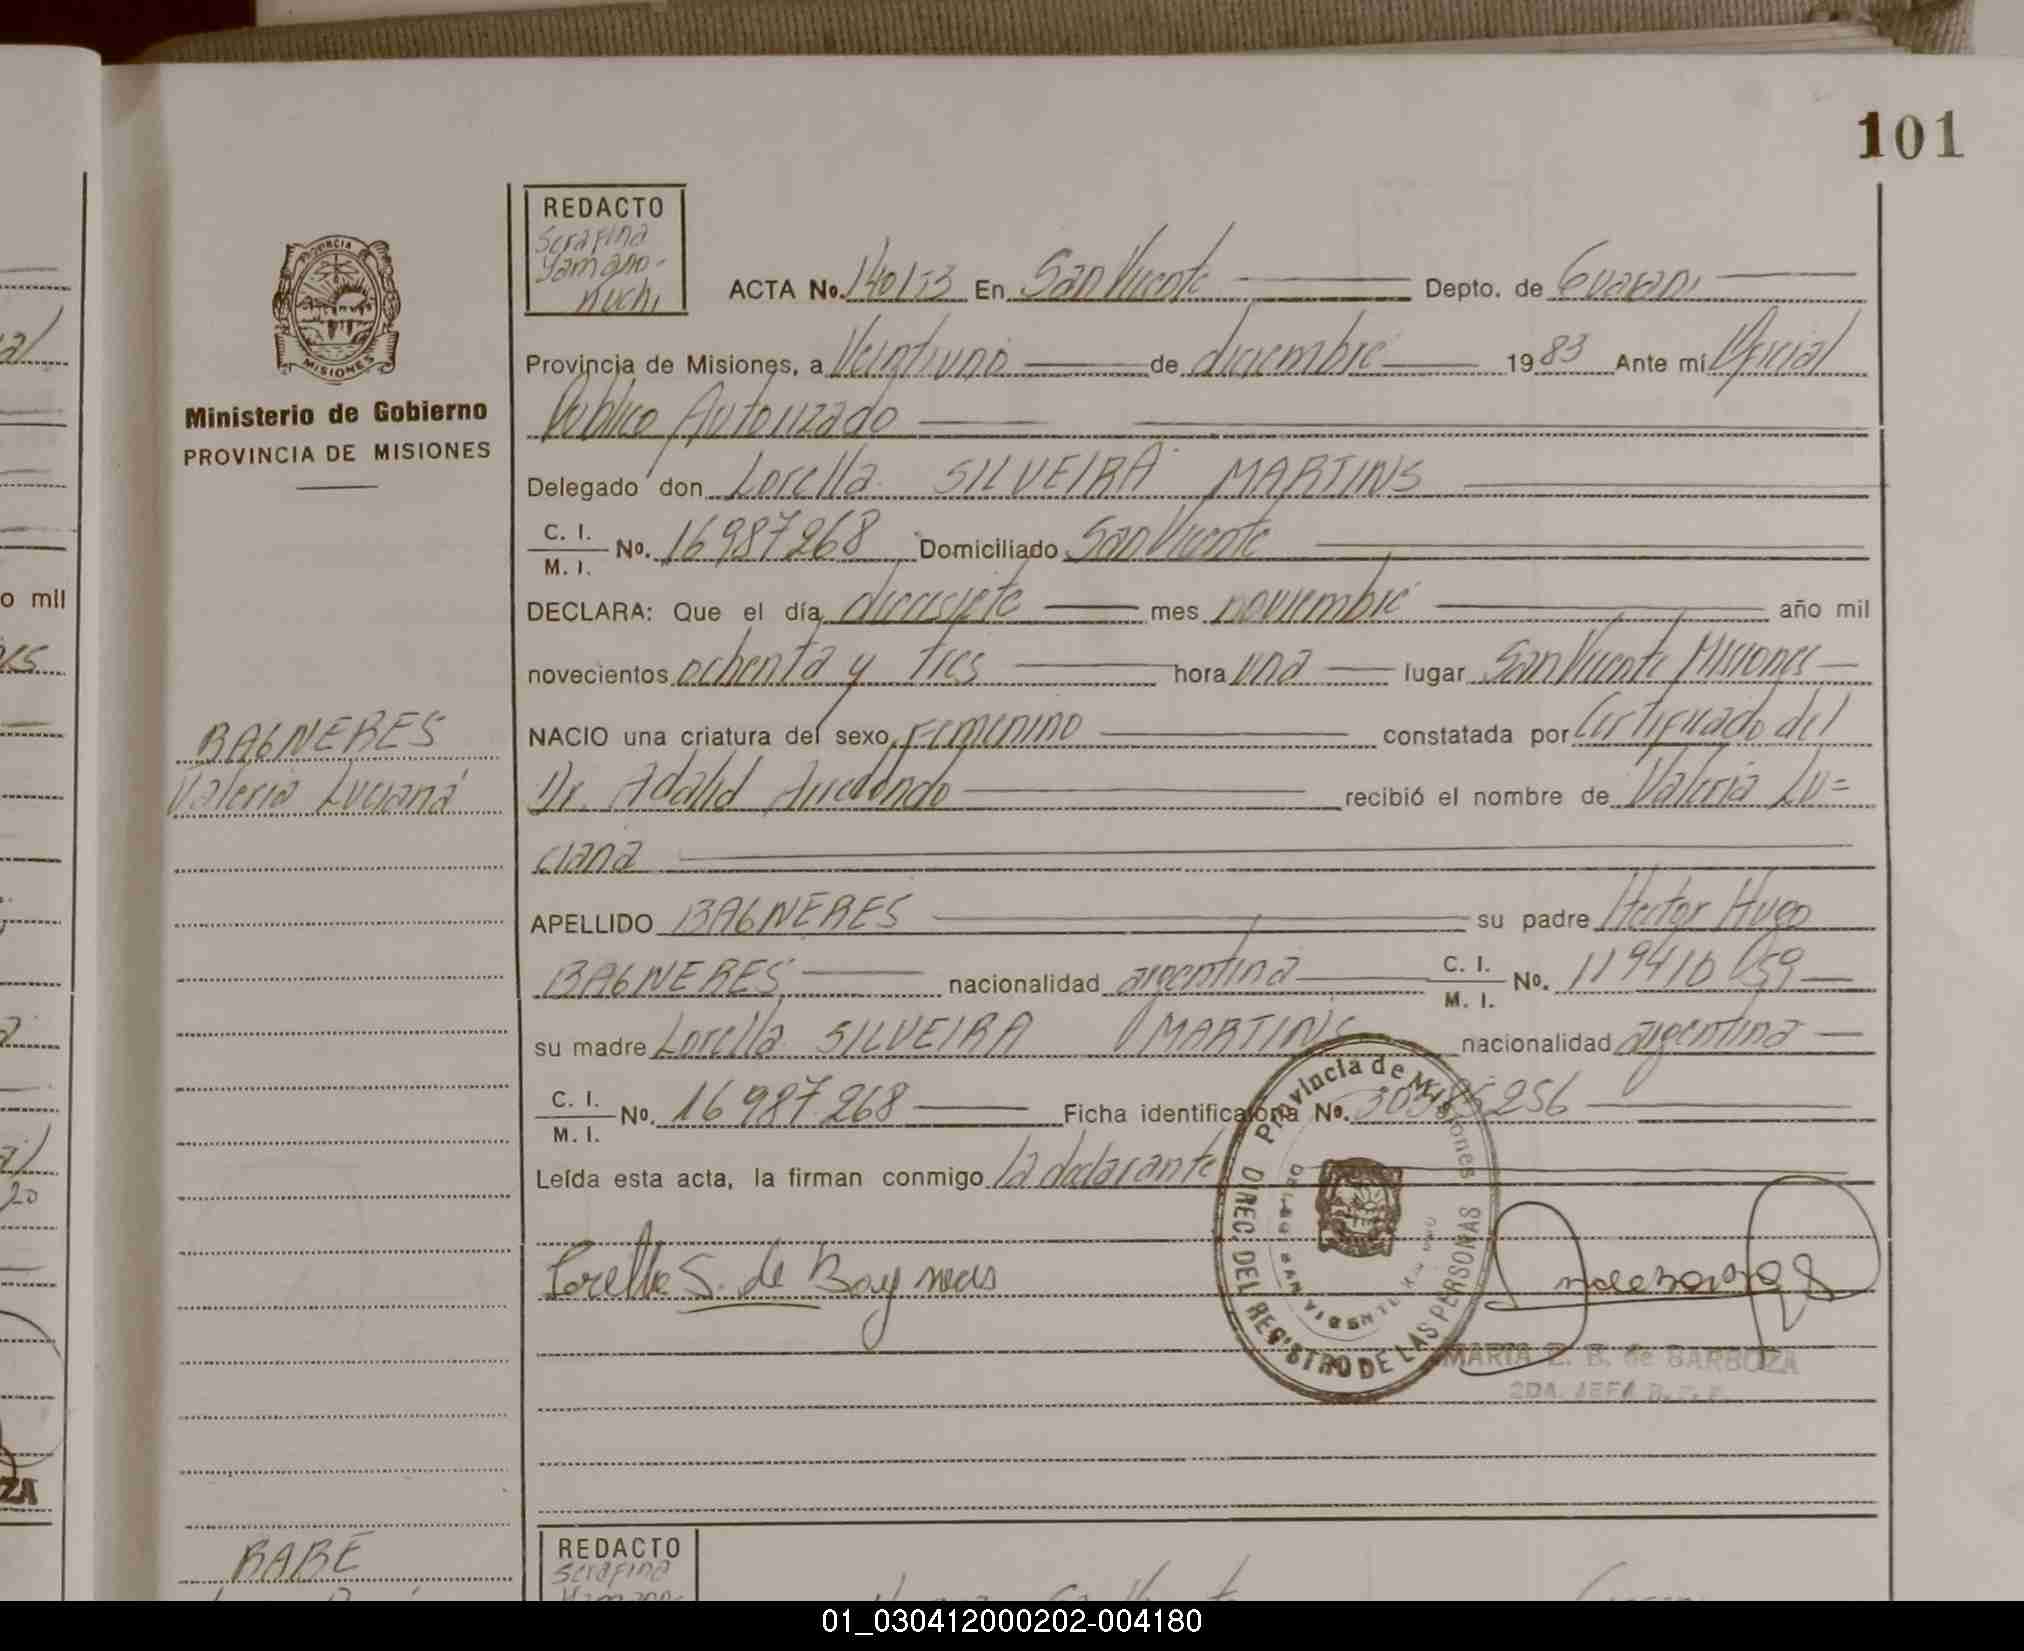 101
REDACTO
Serafina
Yamano-
nuchi
ACTA No. En San Vicente Depto. de Guarani
PROVINCIA DE
MISIONES
Provincia de Misiones, a Veintiuno de diciembre 1983 Ante mí Oficial
Ministerio de Gobierno
Publico Autorizado
PROVINCIA DE MISIONES
Delegado don Lorella SILVEIRA MARTINS
C. I.
M. I.
No. 16987268 Domiciliado San Vicente
DECLARA: Que el día diecisiete mes noviembre año mil
novecientos ochenta y tres hora una lugar San Vicente Misiones
BAGNERES
NACIO una criatura del sexo Femenino constatada por Certificado del
Valeria Luciana
Dr. Adalid Arredondo recibió el nombre de Valeria Lu=
ciana
APELLIDO BAGNERES su padre Hector Hugo
BAGNERES nacionalidad argentina C. I.
M. I.
No.
su madre Lorella SILVEIRA MARTINS nacionalidad argentina
C. I.
M. I.
No. 16987268 Ficha identificatoria No. 30385256
Leída esta acta, la firman conmigo la declarante
Lorella S. de Bagneres
Provincia de Misiones
DIREC. DEL REGISTRO DE LAS PERSONAS
SAN VICENTE
MARIA E. B. de BARBOZA
2DA. JEFA
o mil
ZA
BABE
REDACTO
Serafina
01_030412000202-004180